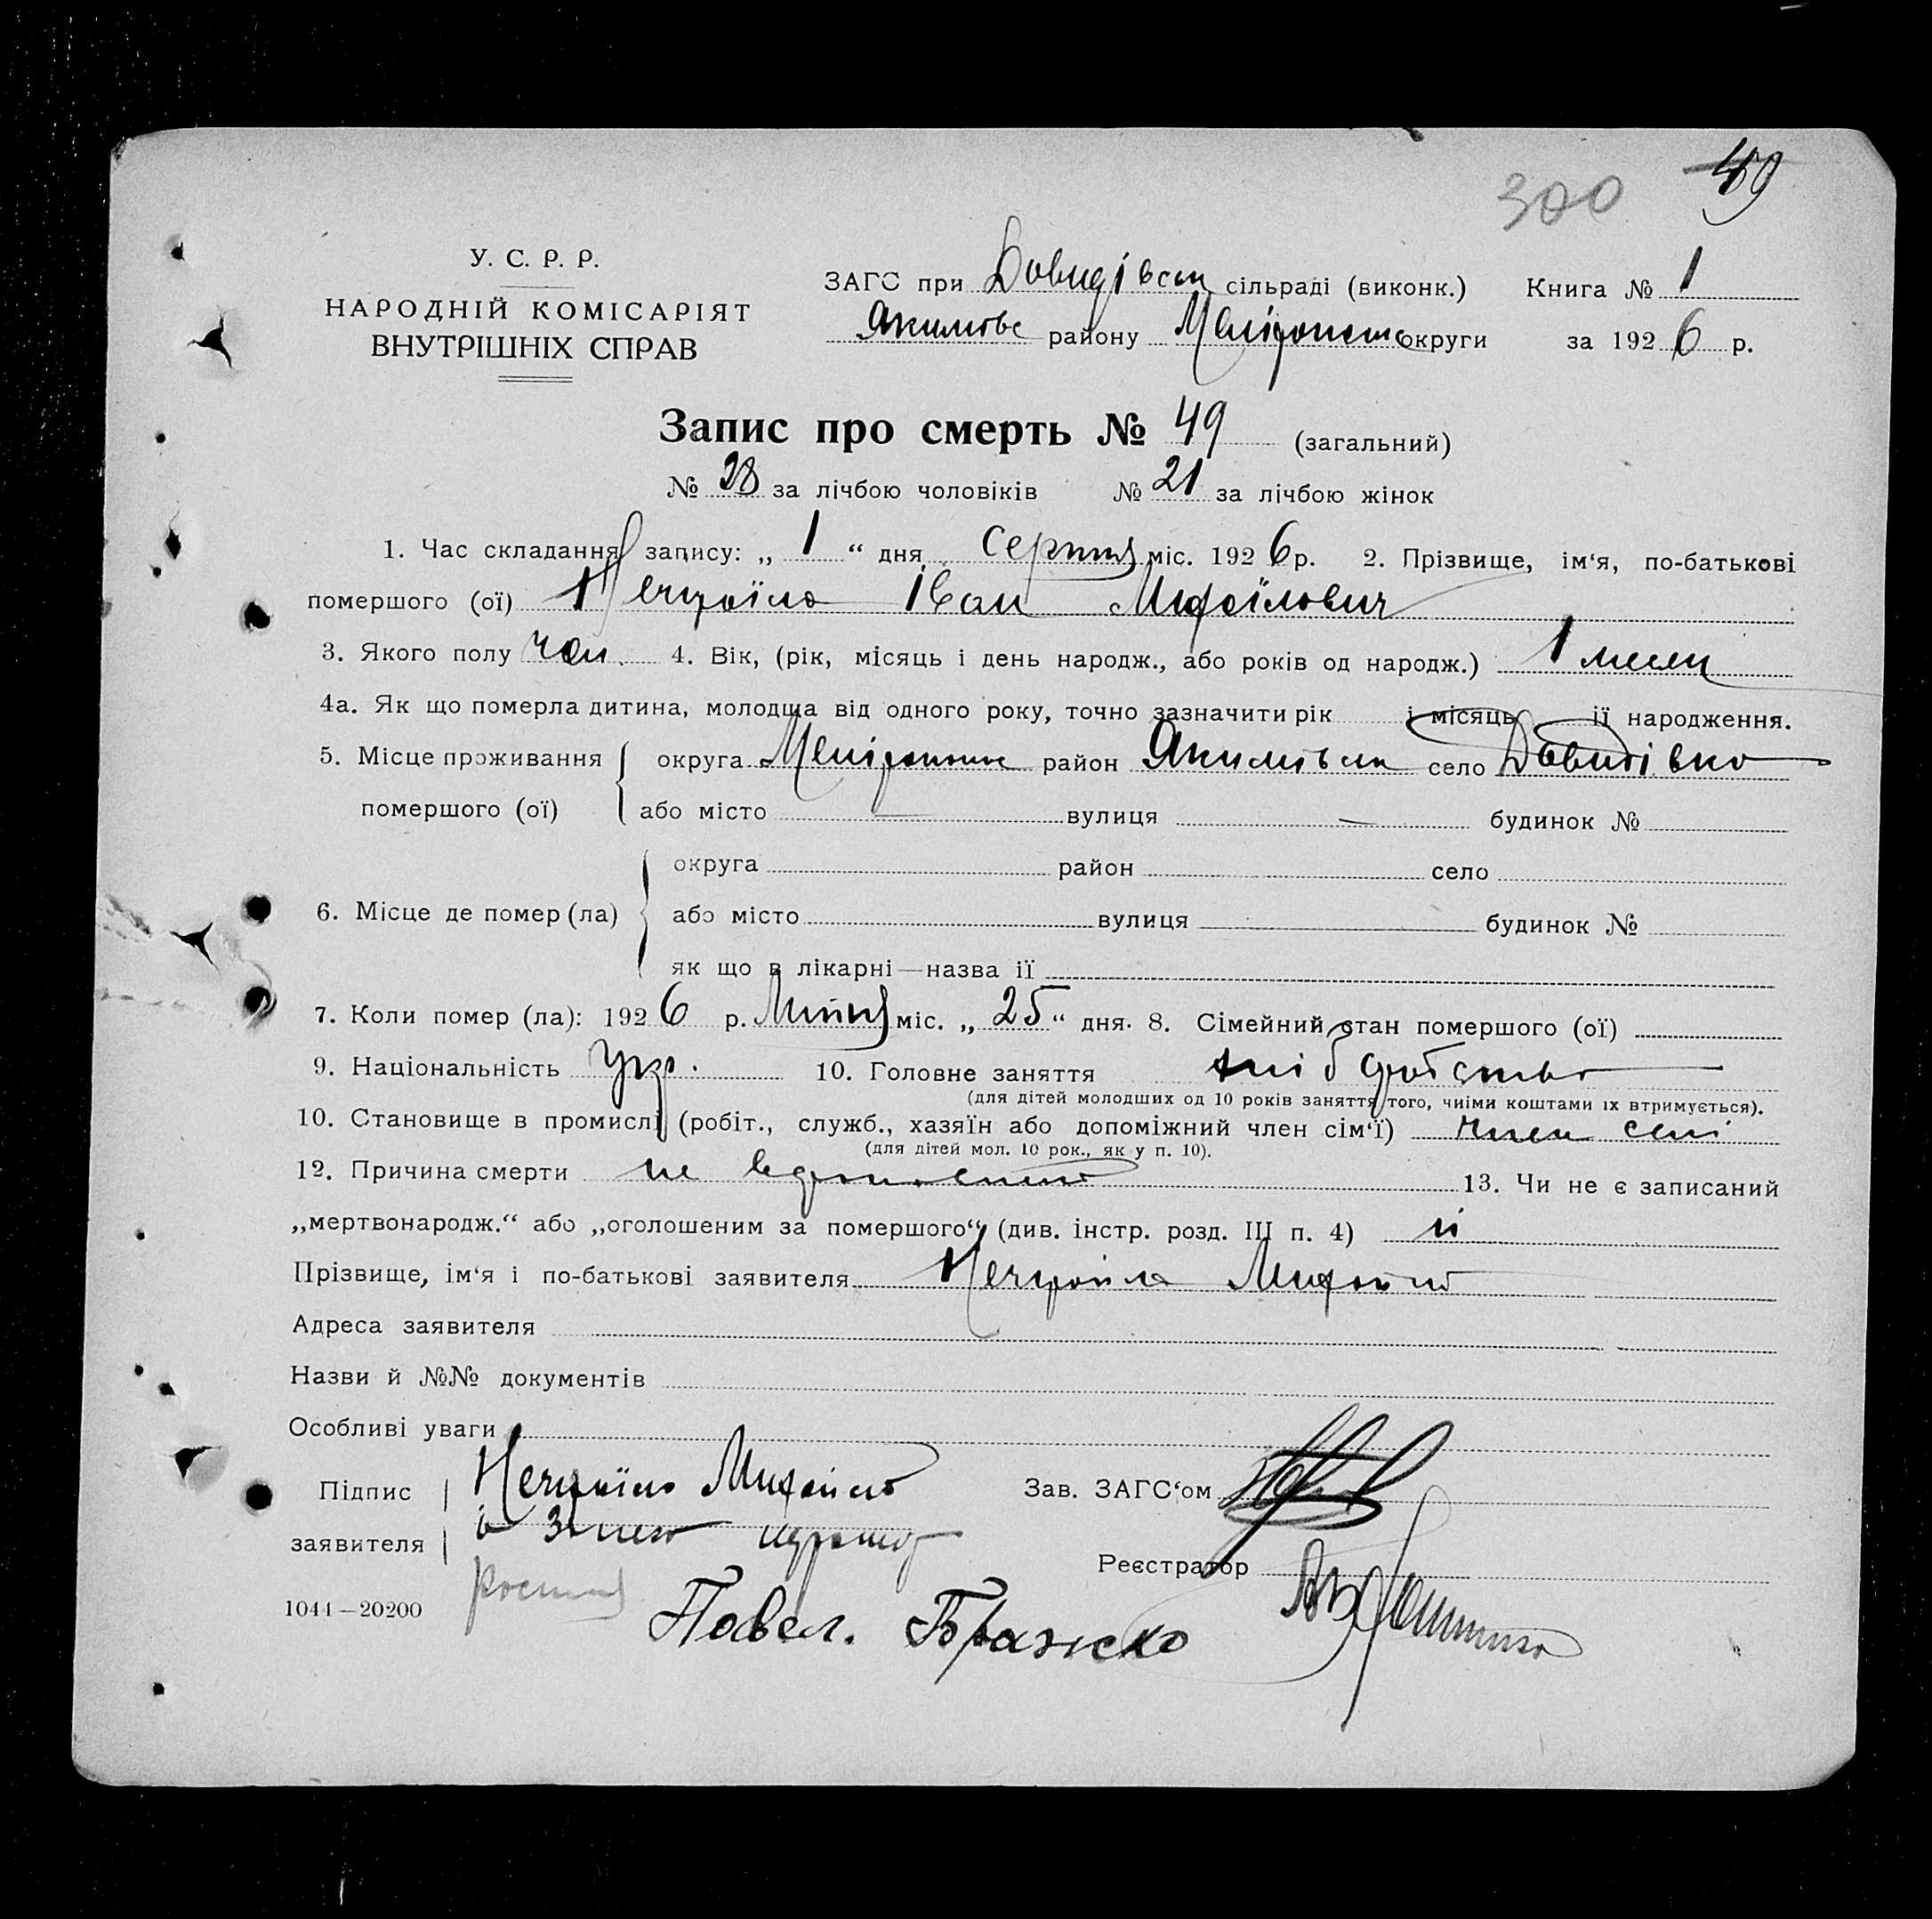 300 49
У. С. Р. Р.
НАРОДНІЙ КОМІСАРІЯТ
ВНУТРІШНІХ СПРАВ
ЗАГС при Довидівськ сільраді (виконк.) Книга № 1
Якимовс району Меліропольс округи за 1926 р.
Запис про смерть № 49 (загальний)
№ 28 за лічбою чоловіків № 21 за лічбою жінок
1. Час складання запису: „ 1 “ дня Серпня міс. 1926 р. 2. Прізвище, ім‘я, по-батькові
помершого (ої) Іван Михаїлович
3. Якого полу чол. 4. Вік, (рік, місяць і день народж., або років од народж.) 1 месец
4а. Як що померла дитина, молодша від одного року, точно зазначити рік і місяць її народження.
5. Місце проживання округа район Якимівськ село Довидівка
помершого (ої) або місто вулиця будинок №
округа район село
6. Місце де помер (ла) або місто вулиця будинок №
як що в лікарні—назва її
7. Коли помер (ла): 1926 р. міс. „ 25 “ дня. 8. Сімейний стан помершого (ої)
9. Національність Укр. 10. Головне заняття хліборобство
(для дітей молодших од 10 років заняття того, чиїми коштами їх втримується).
10. Становище в промислі (робіт., служб., хазяїн або допоміжний член сім‘ї) член семі
(для дітей мол. 10 рок., як у п. 10).
12. Причина смерти не 13. Чи не є записаний
„мертвонародж.“ або „оголошеним за помершого“ (див. інстр. розд. III п. 4) ні
Прізвище, ім‘я і по-батькові заявителя Михайло
Адреса заявителя
Назви й №№ документів
Особливі уваги
Підпис Михайло Зав. ЗАГС‘ом
заявителя
Реєстратор
1044—20200 Павел. Бражко